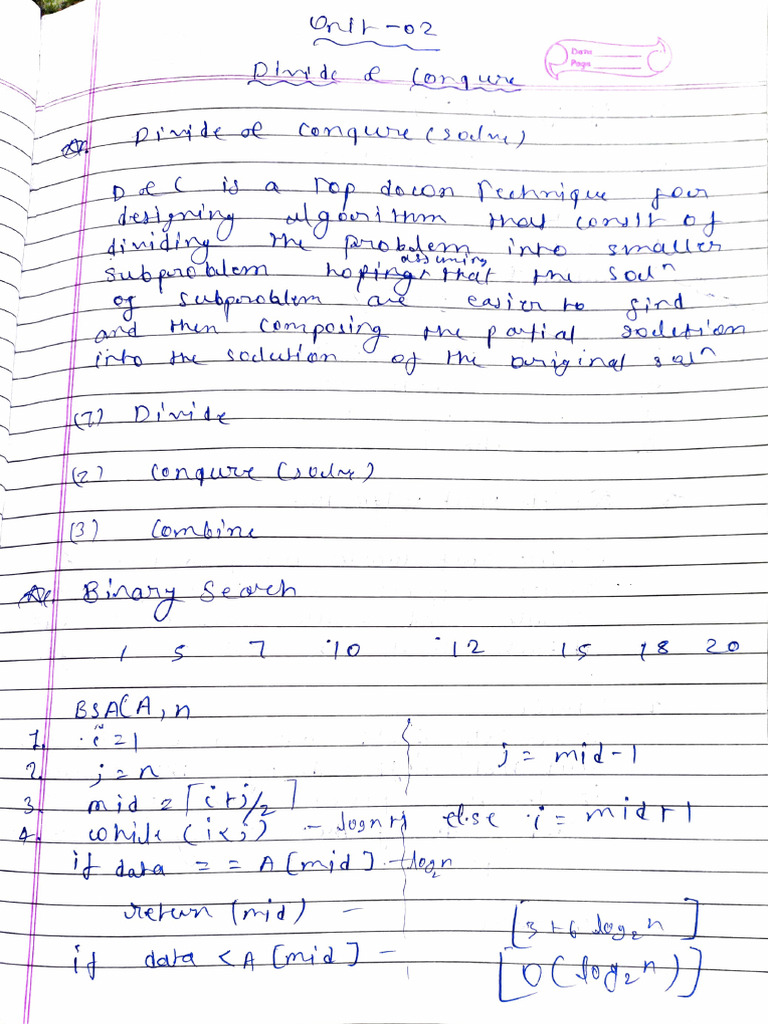 Unit -02
Date
Page
Divide & Conqure
Divide & Conqure (solve)
D & C is a Top down Technique for
designing algorithm that consit of
dividing the problem into smaller
assuming
subproblem hoping that the solⁿ
of subproblem are easier to find
and then composing the partial solution
into the solution of the original solⁿ
(1) Divide
(2) Conqure (solve)
(3) Combine
Binary Search
1 5 7 10 12 15 18 20
BSA(A, n
1. i = 1
2. j = n
3. mid = ⌈i+j/2⌉
4. while (i<j) - logn+1
if data == A[mid] - log₂n
return (mid) -
if data < A[mid] -
j = mid-1
else i = mid+1
[3+6 log₂n]
[O(log₂n)]